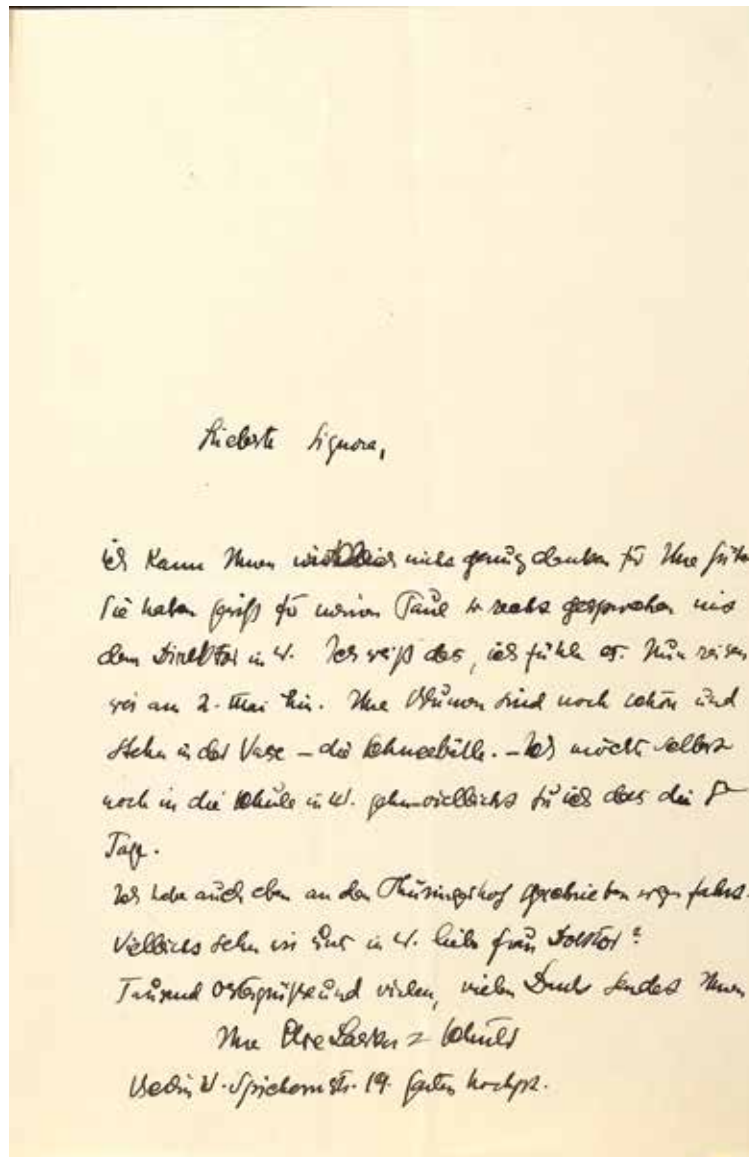 Liebste Signora,
ich kann Ihnen nicht genug danken für Ihre Güte
Sie haben für meinen Paul so gesprochen mit
dem Direktor in W. Ich weiß das, ich fühle es. Nun reisen
wir am 2. Mai hin. Ihre Blumen sind noch schön und
stehn in der Vase – die Schneebälle. – Ich möchte selbst
noch in die Schule in W. gehn vielleicht tu ich das die
Tage.
Ich habe auch eben an den geschrieben
Vielleicht sehn wir uns in W. liebe Frau Doktor?
Tausend Ostergrüße und vielen, vielen Dank sendet Ihnen
Ihre Else Lasker = Schüler
Berlin W. Spichernstr. 19. Garten hochpt.